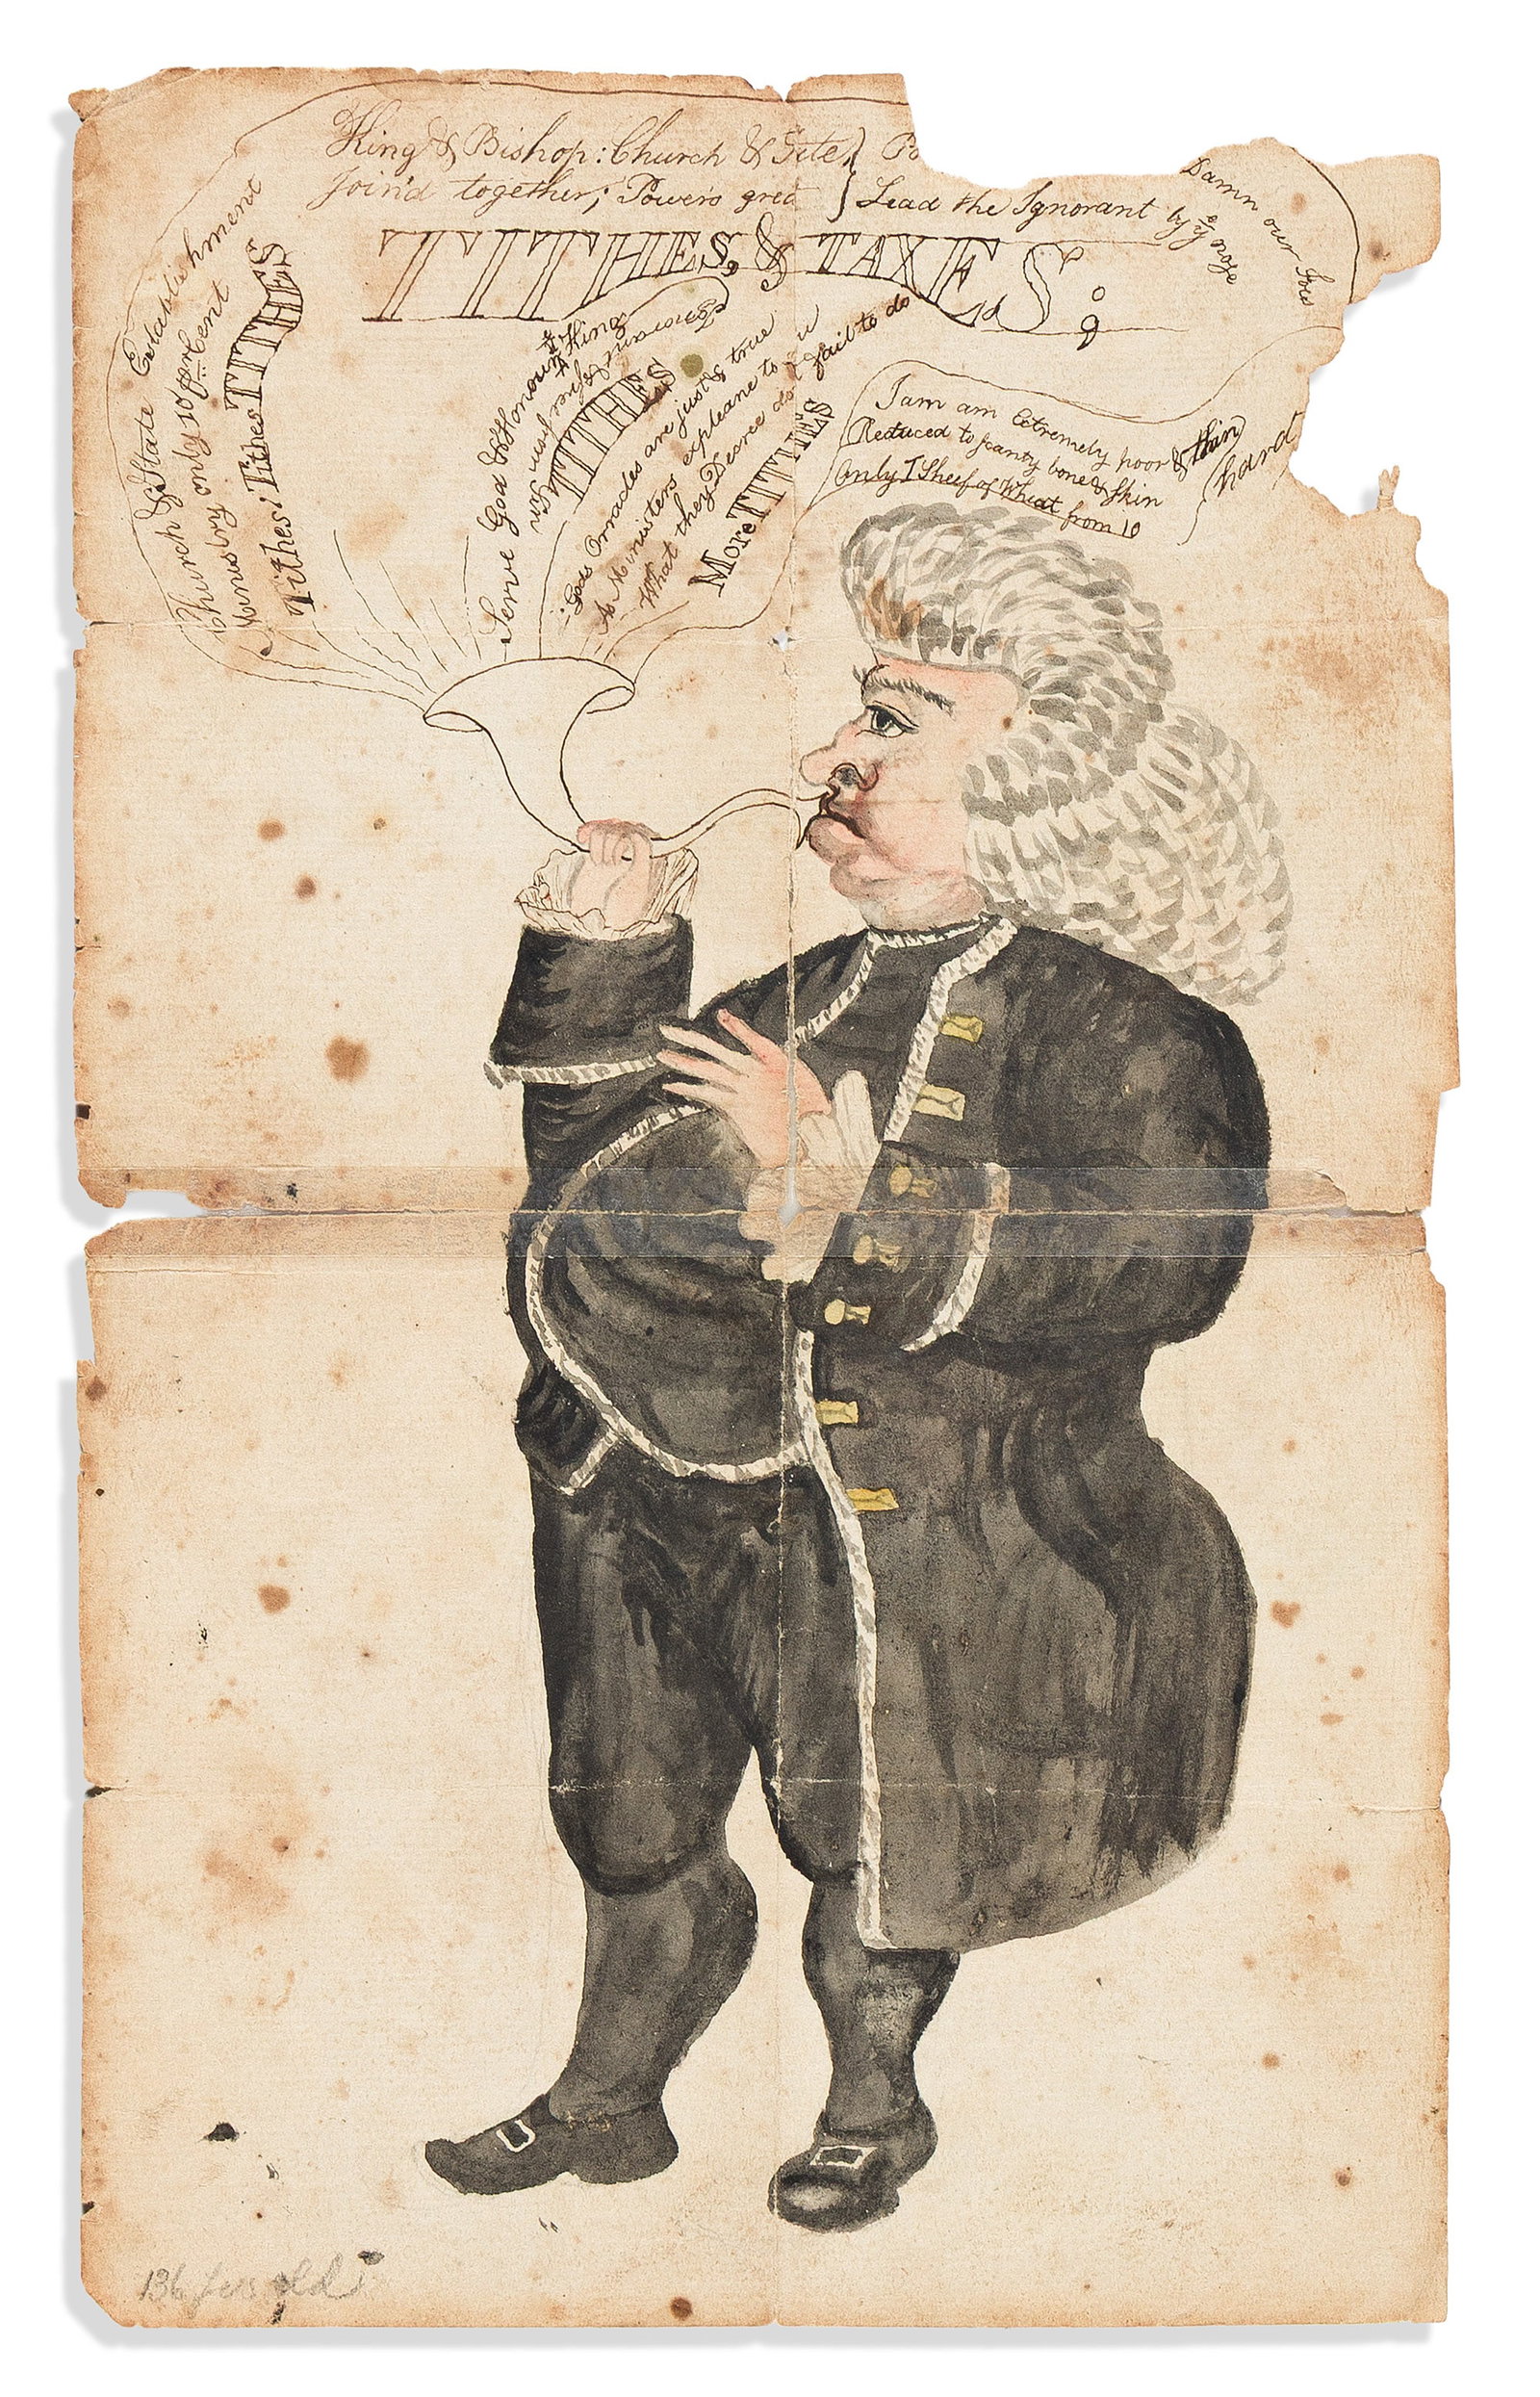 King & Bishop: Church & Stte
Join'd together; Powers gret
Lead the Ignorant by ye noze
Damn our
TITHES, & TAXES;
Church & State Establishment
only 10 per Cent
Tithes; Tithes TITHES
Serve God & Honour ye King
TITHES
Gods Orrades are just & true
As Ministers expleane to
What they Decree do fail to do
More TITHES
I am am Extremely poor & thin
Reduced to scanty bone & skin
Only 1 Sheef of Wheat from 10
hard
136